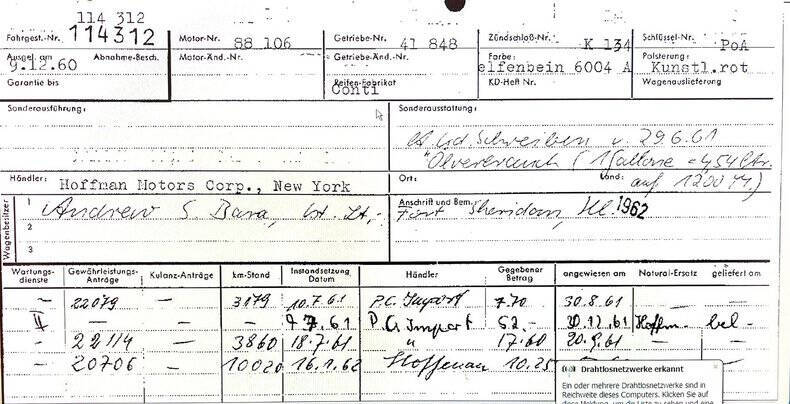 114 312
Fahrgest.-Nr. 114312 Motor-Nr. 88 106 Getriebe-Nr. 41 848 Zündschloß-Nr. K 134 Schlüssel-Nr. PoA
Ausgel. am 9.12.60 Abnahme-Besch. Motor-Änd.-Nr. Getriebe-Änd.-Nr. Farbe: elfenbein 6004 A Polsterung: Kunstl.rot
Garantie bis Reifen-Fabrikat Conti KD-Heft Nr. Wagenauslieferung
Sonderausführung: Sonderausstattung:
Schreiben v. 29.6.61
"Ölverbrauch (1 Gallone = 4,54 Ltr.
Händler: Hoffman Motors Corp., New York Ort: Land: auf 1200 M.)
Wagenbesitzer
1 Andrew S. Bara, 1st. Lt., Anschrift und Bem.: Fort Sheridan, Ill. 1962
2
3
Wartungsdienste Gewährleistungs-Anträge Kulanz-Anträge km-Stand Instandsetzung Datum Händler Gegebener Betrag angewiesen am Natural-Ersatz geliefert am
– 22079 – 3179 10.7.61 P.C. Import 7.70 30.8.61 – –
– – 7.61 P.C. Import 52.- 12.61 Hoffm. bel -
– 22114 – 3860 18.7.61 " 17.60 20.9.61 –
– 20706 – 10020 16.1.62 Hoffman 10.25
Drahtlosnetzwerke erkannt
Ein oder mehrere Drahtlosnetzwerke sind in
Reichweite dieses Computers. Klicken Sie auf
diese Meldung, um die Liste zu sehen und eine